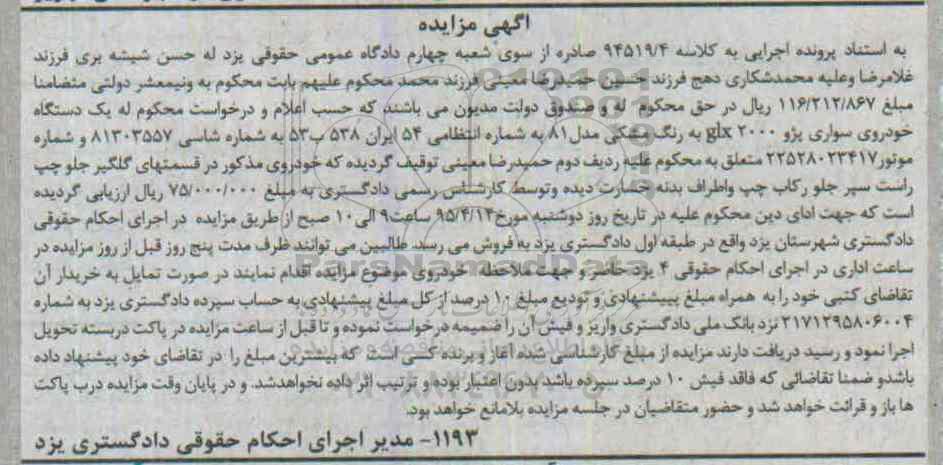 آگهی مزایده
به استناد پرونده اجرایی به کلاسه ۹۴۵۱۹/۴ صادره از سوی شعبه چهارم دادگاه عمومی حقوقی یزد له حسن شیشه بری فرزند
غلامرضا وعلیه محمدشکاری دهج فرزند حسین حمیدرضا معینی فرزند محمد محکوم علیهم بابت محکوم به ونیمعشر دولتی متضامنا
مبلغ ۱۱۶/۲۱۲/۸۶۷ ریال در حق محکوم له و صندوق دولت مدیون می باشند که حسب اعلام و درخواست محکوم له یک دستگاه
خودروی سواری پژو glx ۲۰۰۰ به رنگ مشکی مدل۸۱ به شماره انتظامی ۵۴ ایران ۵۳۸ ب۵۳ به شماره شاسی ۸۱۳۰۳۵۵۷ و شماره
موتور۲۲۵۲۸۰۲۳۴۱۷ متعلق به محکوم علیه ردیف دوم حمیدرضا معینی توقیف گردیده که خودروی مذکور در قسمتهای گلگیر جلو چپ
راست سپر جلو رکاب چپ واطراف بدنه خسارت دیده وتوسط کارشناس رسمی دادگستری به مبلغ ۷۵/۰۰۰/۰۰۰ ریال ارزیابی گردیده
است که جهت ادای دین محکوم علیه در تاریخ روز دوشنبه مورخ۹۵/۴/۱۴ ساعت۹ الی ۱۰ صبح از طریق مزایده در اجرای احکام حقوقی
دادگستری شهرستان یزد واقع در طبقه اول دادگستری یزد به فروش می رسد. طالبین می توانند ظرف مدت پنج روز قبل از روز مزایده در
ساعت اداری در اجرای احکام حقوقی ۴ یزد حاضر و جهت ملاحظه خودروی موضوع مزایده اقدام نمایند در صورت تمایل به خریدار آن
تقاضای کتبی خود را به همراه مبلغ پیشنهادی و تودیع مبلغ ۱۰ درصد از کل مبلغ پیشنهادی به حساب سپرده دادگستری یزد به شماره
۲۱۷۱۲۹۵۸۰۶۰۰۴ نزد بانک ملی دادگستری واریز و فیش آن را ضمیمه درخواست نموده و تا قبل از ساعت مزایده در پاکت دربسته تحویل
اجرا نمود و رسید دریافت دارند مزایده از مبلغ کارشناسی شده آغاز و برنده کسی است که بیشترین مبلغ را در تقاضای خود پیشنهاد داده
باشدو ضمنا تقاضائی که فاقد فیش ۱۰ درصد سپرده باشد بدون اعتبار بوده و ترتیب اثر داده نخواهدشد. و در پایان وقت مزایده درب پاکت
ها باز و قرائت خواهد شد و حضور متقاضیان در جلسه مزایده بلامانع خواهد بود.
۱۱۹۳- مدیر اجرای احکام حقوقی دادگستری یزد
ParsNamadData